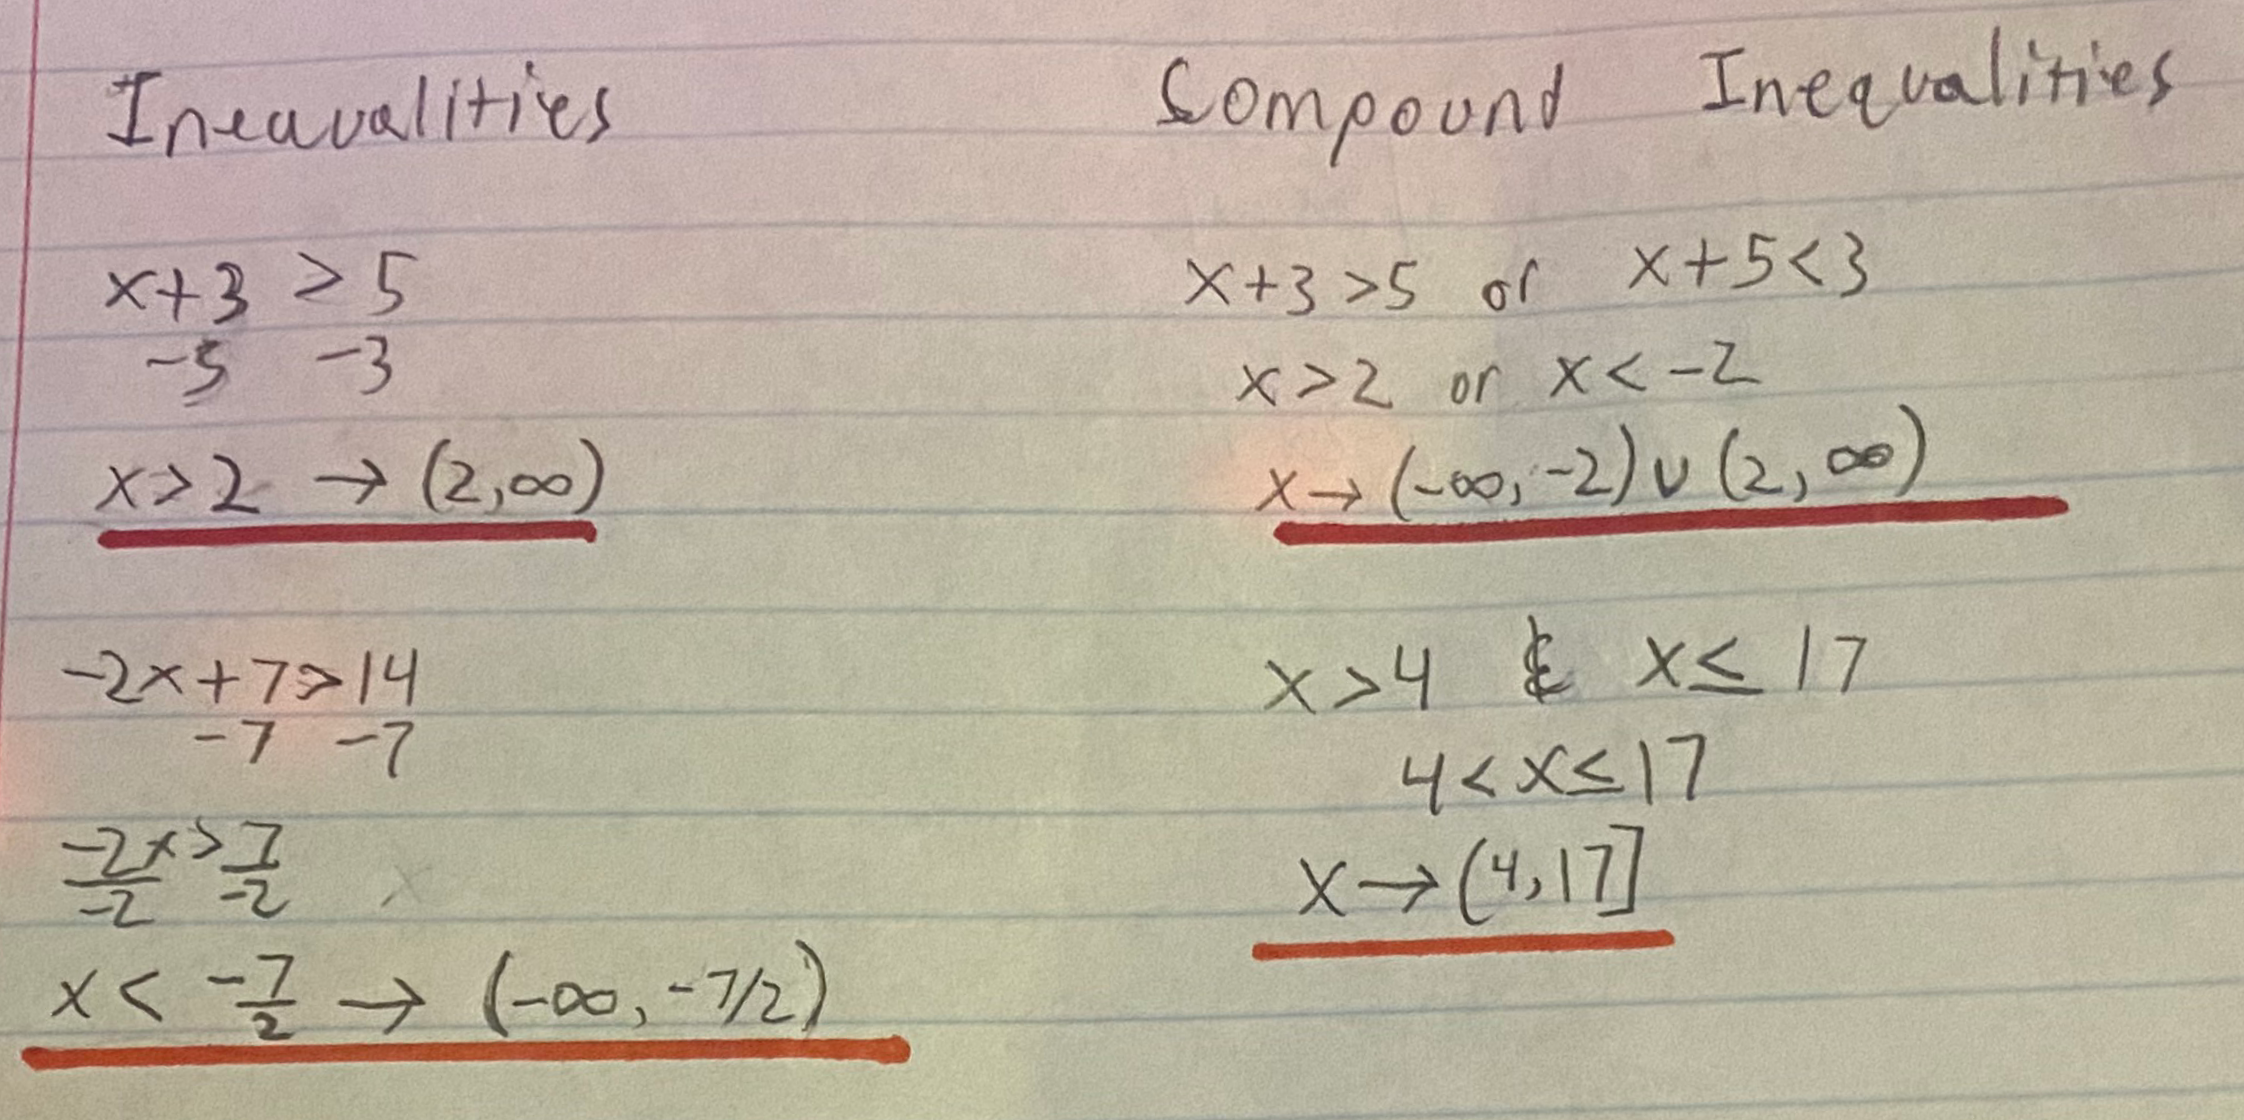 Ineaualities
x+3 > 5
-5 -3
x>2 → (2,∞)
-2x+7>14
-7 -7
-2x/-2 > 7/-2
x < -7/2 → (-∞, -7/2)
Compound Inequalities
x+3>5 or x+5<3
x>2 or x<-2
x→(-∞,-2)∪(2,∞)
x>4 & x≤17
4<x≤17
x→(4,17]